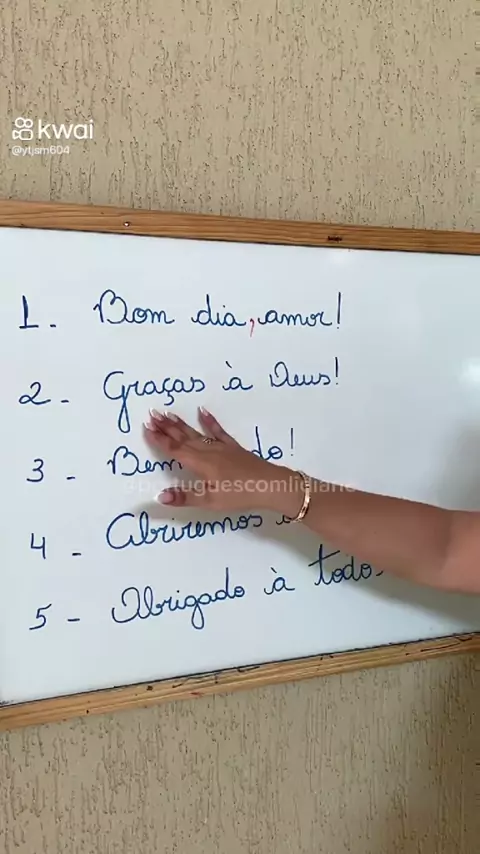 kwai
@ytjsm604
1. Bom dia, amor!
2. Graças à Deus!
3 - Bem do!
@portuguescomlidiane
4 - Abriremos
5 - Obrigado à todo